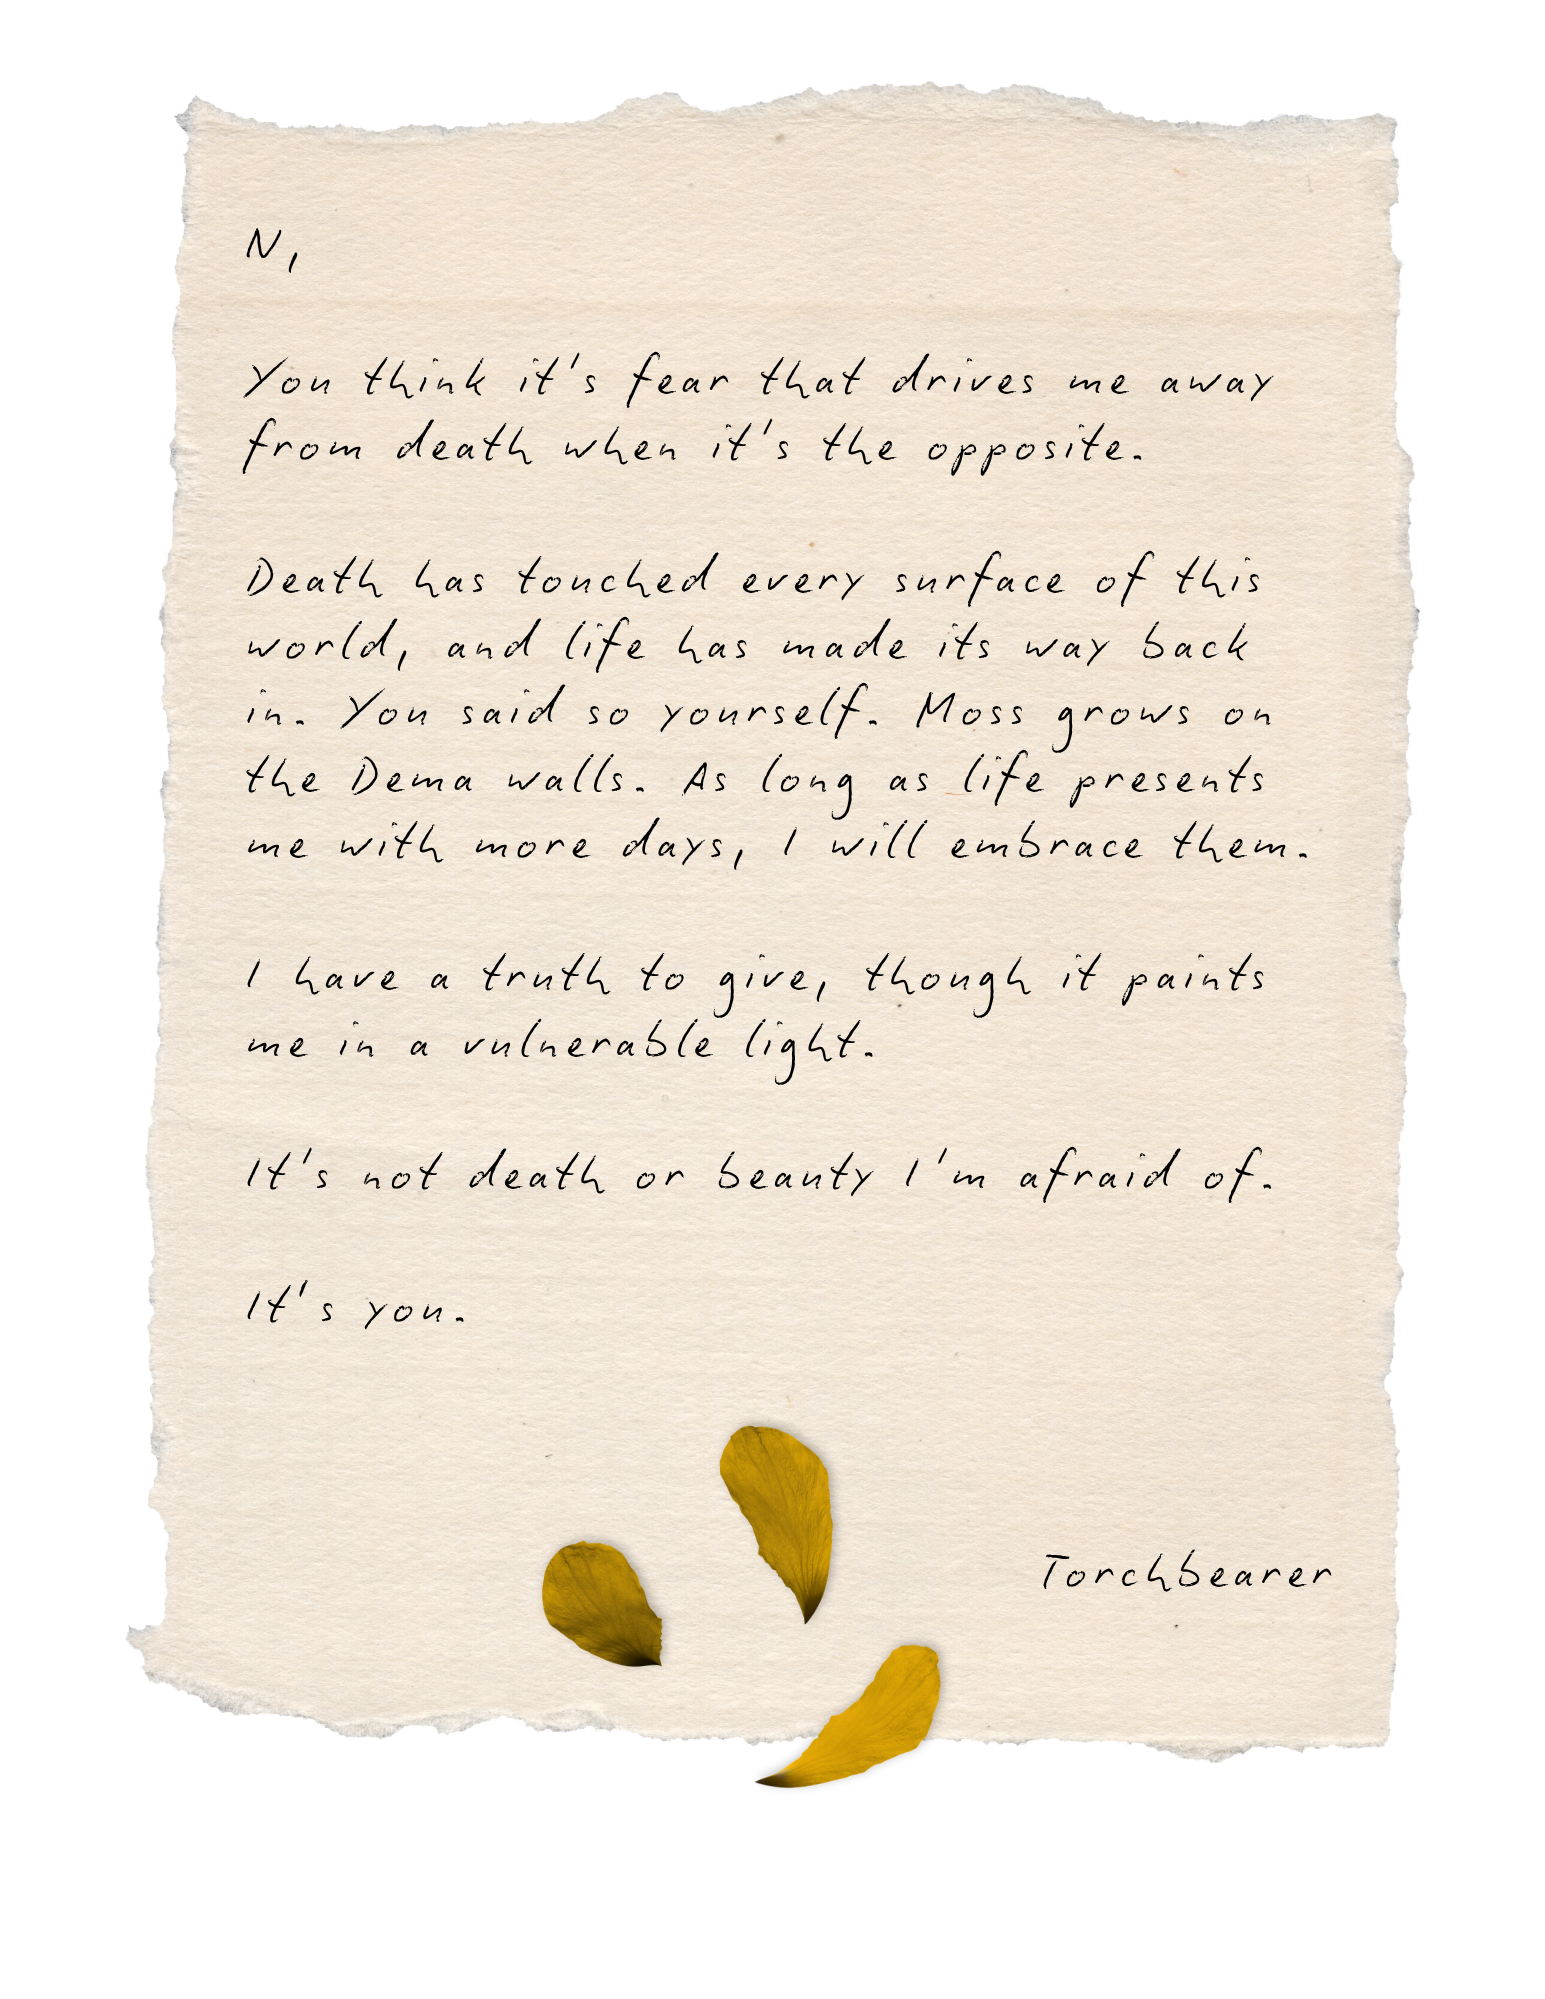 N,
You think it's fear that drives me away
from death when it's the opposite.
Death has touched every surface of this
world, and life has made its way back
in. You said so yourself. Moss grows on
the Dema walls. As long as life presents
me with more days, I will embrace them.
I have a truth to give, though it paints
me in a vulnerable light.
It's not death or beauty I'm afraid of.
It's you.
Torchbearer